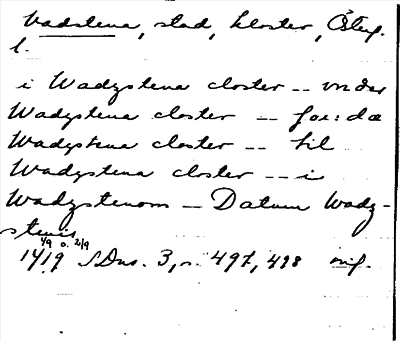 Vadstena, stad, kloster, Österg.
l.
i Wadzstena closter -- vnder
Wadzstena closter -- for:da
Wadzstena closter -- til
Wadzstena closter -- i
Wadzstenom -- Datum Wadz-
stenis
1/9 o. 2/9
1419 SDns. 3, s. 497, 498 orig.